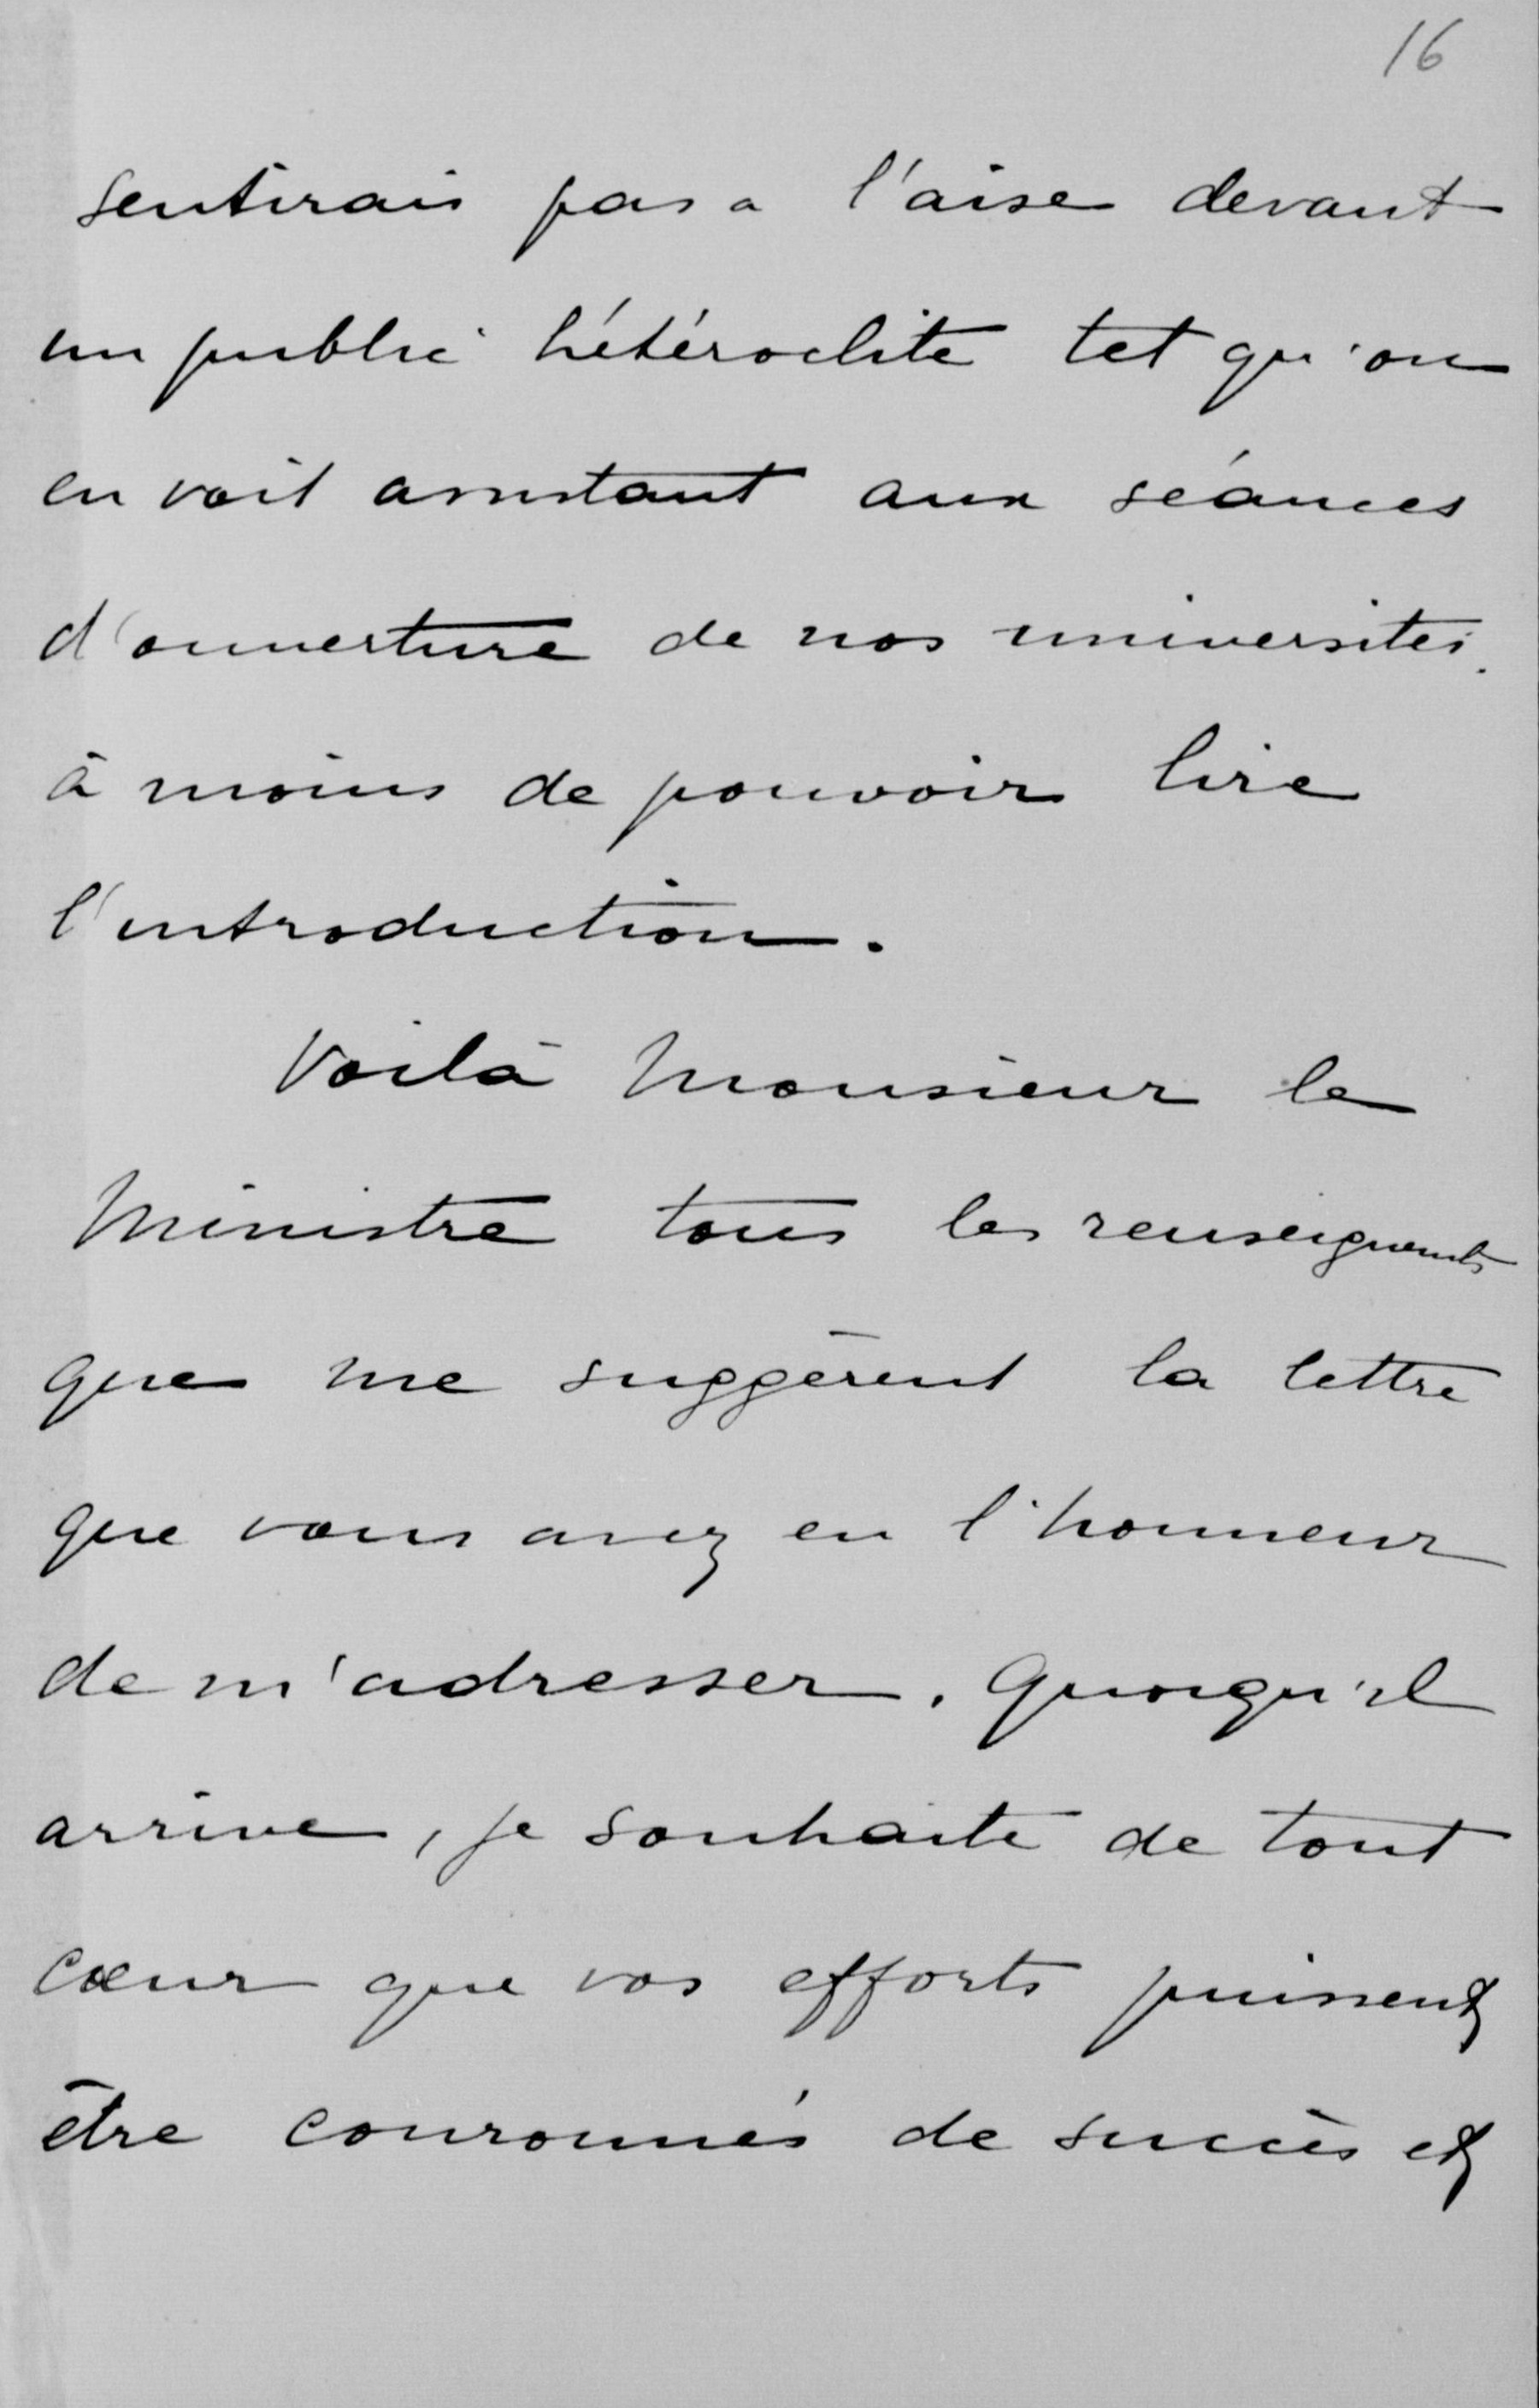 16
sentirais pas a l'aise devant
un public hétéroclite tel qu'on
en voit assistant aux séances
d'ouverture de nos universités.
à moins de pouvoir lire
l'introduction.
Voilà Monsieur le
Ministre tous les renseignemts
que me suggèrent la lettre
que vous avez eu l'honneur
de m'adresser. Quoiqu'il
arrive, je souhaite de tout
cœur que vos efforts puissent
être couronnés de succès et